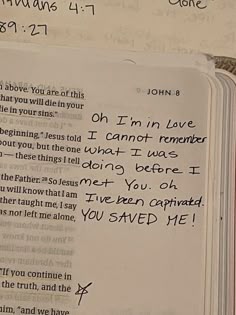 4:7
alone
89:27
JOHN 8
above. You are of this
hat you will die in your
die in your sins."
beginning," Jesus told
out you, but the one
— these things I tell
the Father. 28 So Jesus
u will know that I am
ther taught me, I say
as not left me alone,
"If you continue in
the truth, and the
him, "and we have
Oh I'm in Love
I cannot remember
what I was
doing before I
met You. Oh
I've been captivated.
YOU SAVED ME!